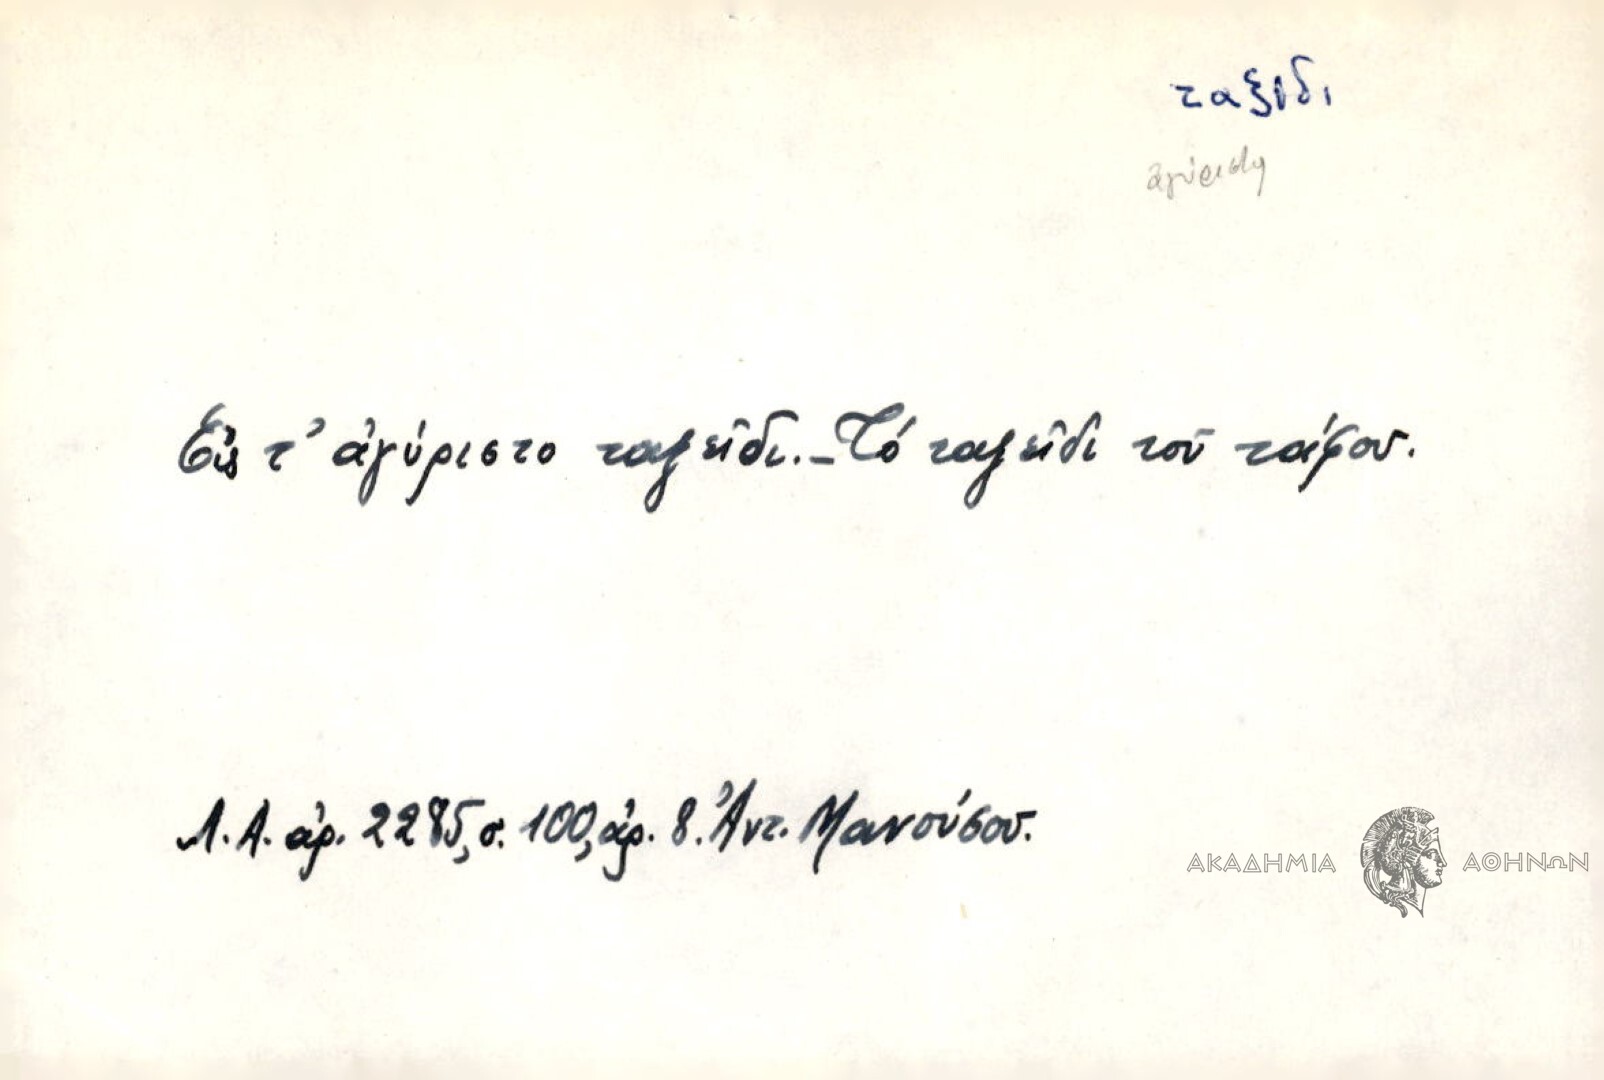 ταξίδι
ἀγύριστο
Εἰς τ' ἀγύριστο ταξεῖδι. – Τό ταξεῖδι τοῦ τάφου.
Λ. Α. ἀρ. 2285, σ. 100, ἀρ. 8. Ἀντ. Μανούσου.
ΑΚΑΔΗΜΙΑ ΑΘΗΝΩΝ